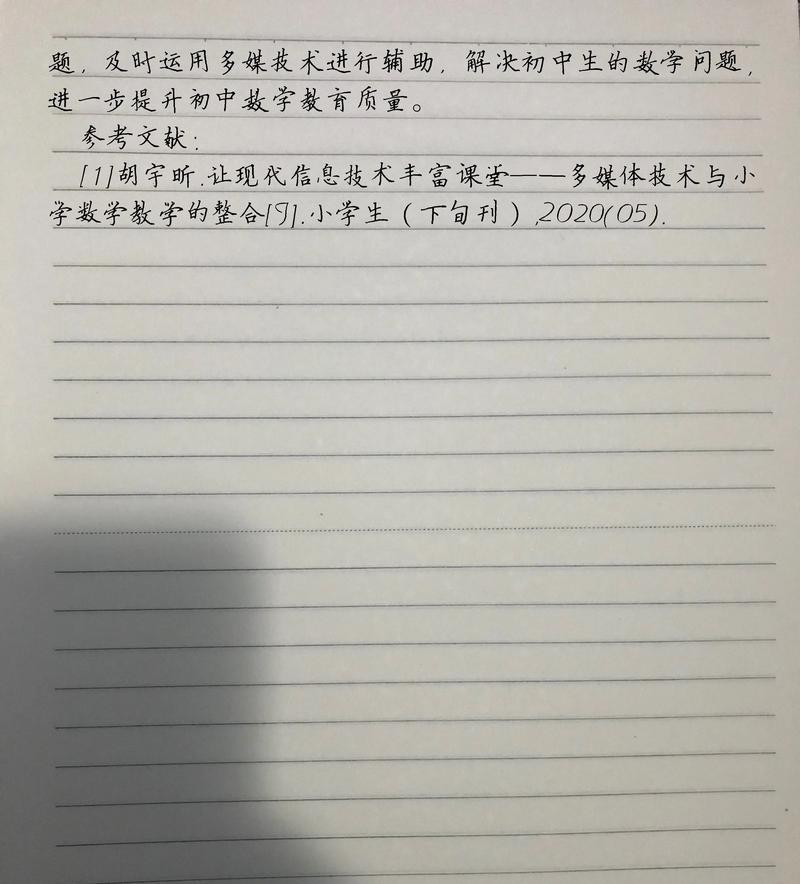 题，及时运用多媒技术进行辅助，解决初中生的数学问题，
进一步提升初中数学教育质量。
参考文献：
[1]胡宇昕.让现代信息技术丰富课堂——多媒体技术与小
学数学教学的整合[J].小学生（下旬刊）,2020(05).